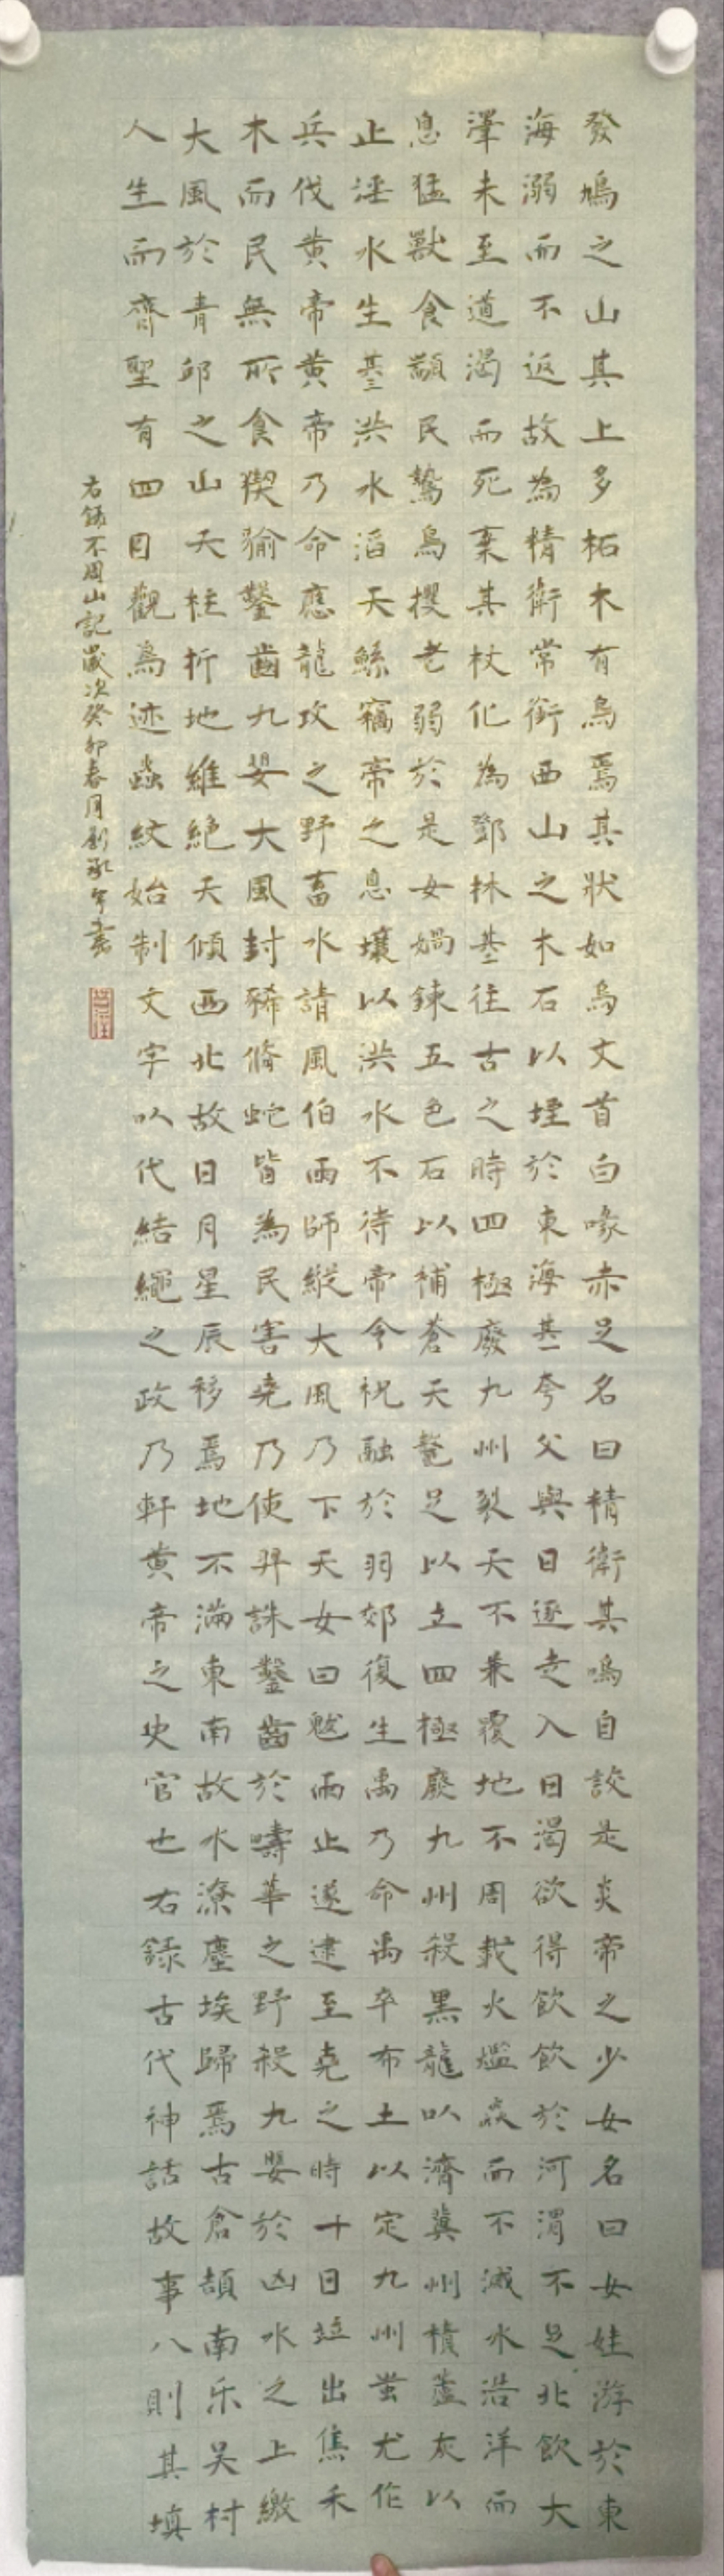 發鳩之山其上多柘木有鳥焉其狀如烏文首白喙赤足名曰精衛其鳴自詨是炎帝之少女名曰女娃游於東
海溺而不返故為精衛常銜西山之木石以堙於東海其一夸父與日逐走入日渴欲得飲飲於河渭不足北飲大
澤未至道渴而死棄其杖化為鄧林其二往古之時四極廢九州裂天不兼覆地不周載火爁焱而不滅水浩洋而
息猛獸食顓民鷙鳥攫老弱於是女媧鍊五色石以補蒼天鼇足以立四極廢九州殺黑龍以濟冀州積蘆灰以
止淫水生其三洪水滔天鯀竊帝之息壤以洪水不待帝令祝融於羽郊復生禹乃命禹卒布土以定九州蚩尤作
兵伐黃帝黃帝乃命應龍攻之野畜水請風伯雨師縱大風乃下天女曰魃雨止遂逮至堯之時十日竝出焦禾
木而民無所食猰貐鑿齒九嬰大風封豨脩蛇皆為民害堯乃使羿誅鑿齒於疇華之野殺九嬰於凶水之上繳
大風於青邱之山天柱折地維絕天傾西北故日月星辰移焉地不滿東南故水潦塵埃歸焉古倉頡南乐吴村
人生而齊聖有四目觀鳥迹蟲紋始制文字以代結繩之政乃軒黃帝之史官也右錄古代神話故事八則其填
右錄不周山記歲次癸卯春月劉承年書